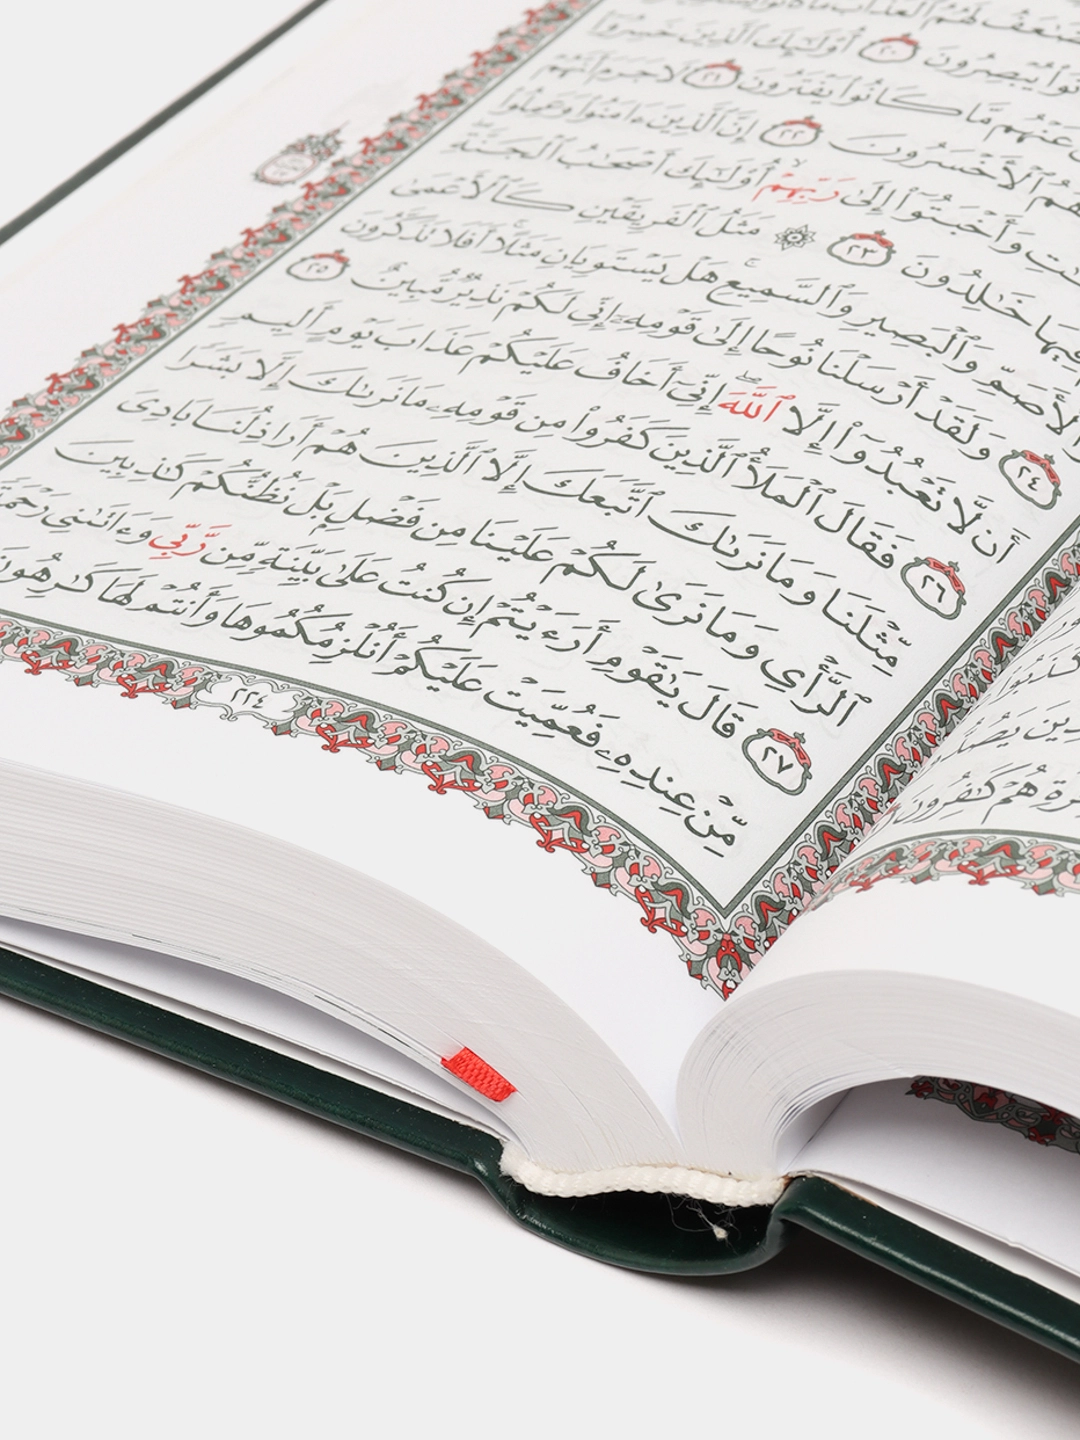 يُضَٰعَفُ لَهُمُ ٱلْعَذَابُ مَا
كَانُوا۟ يُبْصِرُونَ ٢٠ أُو۟لَٰٓئِكَ ٱلَّذِينَ خَسِرُوٓا۟
عَنْهُم مَّا كَانُوا۟ يَفْتَرُونَ ٢١ لَا جَرَمَ أَنَّهُمْ
هُمُ ٱلْأَخْسَرُونَ ٢٢ إِنَّ ٱلَّذِينَ ءَامَنُوا۟ وَعَمِلُوا۟
وَأَخْبَتُوٓا۟ إِلَىٰ رَبِّهِمْ أُو۟لَٰٓئِكَ أَصْحَٰبُ ٱلْجَنَّةِ
فِيهَا خَٰلِدُونَ ٢٣ ۞ مَثَلُ ٱلْفَرِيقَيْنِ كَٱلْأَعْمَىٰ
وَٱلْأَصَمِّ وَٱلْبَصِيرِ وَٱلسَّمِيعِ هَلْ يَسْتَوِيَانِ مَثَلًا أَفَلَا تَذَكَّرُونَ
٢٤ وَلَقَدْ أَرْسَلْنَا نُوحًا إِلَىٰ قَوْمِهِۦٓ إِنِّى لَكُمْ نَذِيرٌ مُّبِينٌ ٢٥
أَن لَّا تَعْبُدُوٓا۟ إِلَّا ٱللَّهَ إِنِّىٓ أَخَافُ عَلَيْكُمْ عَذَابَ يَوْمٍ أَلِيمٍ
٢٦ فَقَالَ ٱلْمَلَأُ ٱلَّذِينَ كَفَرُوا۟ مِن قَوْمِهِۦ مَا نَرَىٰكَ إِلَّا بَشَرًا
مِّثْلَنَا وَمَا نَرَىٰكَ ٱتَّبَعَكَ إِلَّا ٱلَّذِينَ هُمْ أَرَاذِلُنَا بَادِىَ
ٱلرَّأْىِ وَمَا نَرَىٰ لَكُمْ عَلَيْنَا مِن فَضْلٍۭ بَلْ نَظُنُّكُمْ كَٰذِبِينَ
٢٧ قَالَ يَٰقَوْمِ أَرَءَيْتُمْ إِن كُنتُ عَلَىٰ بَيِّنَةٍ مِّن رَّبِّى وَءَاتَىٰنِى رَحْمَةً
مِّنْ عِندِهِۦ فَعُمِّيَتْ عَلَيْكُمْ أَنُلْزِمُكُمُوهَا وَأَنتُمْ لَهَا كَٰرِهُونَ
٢٢٤
هُمْ كَٰفِرُونَ